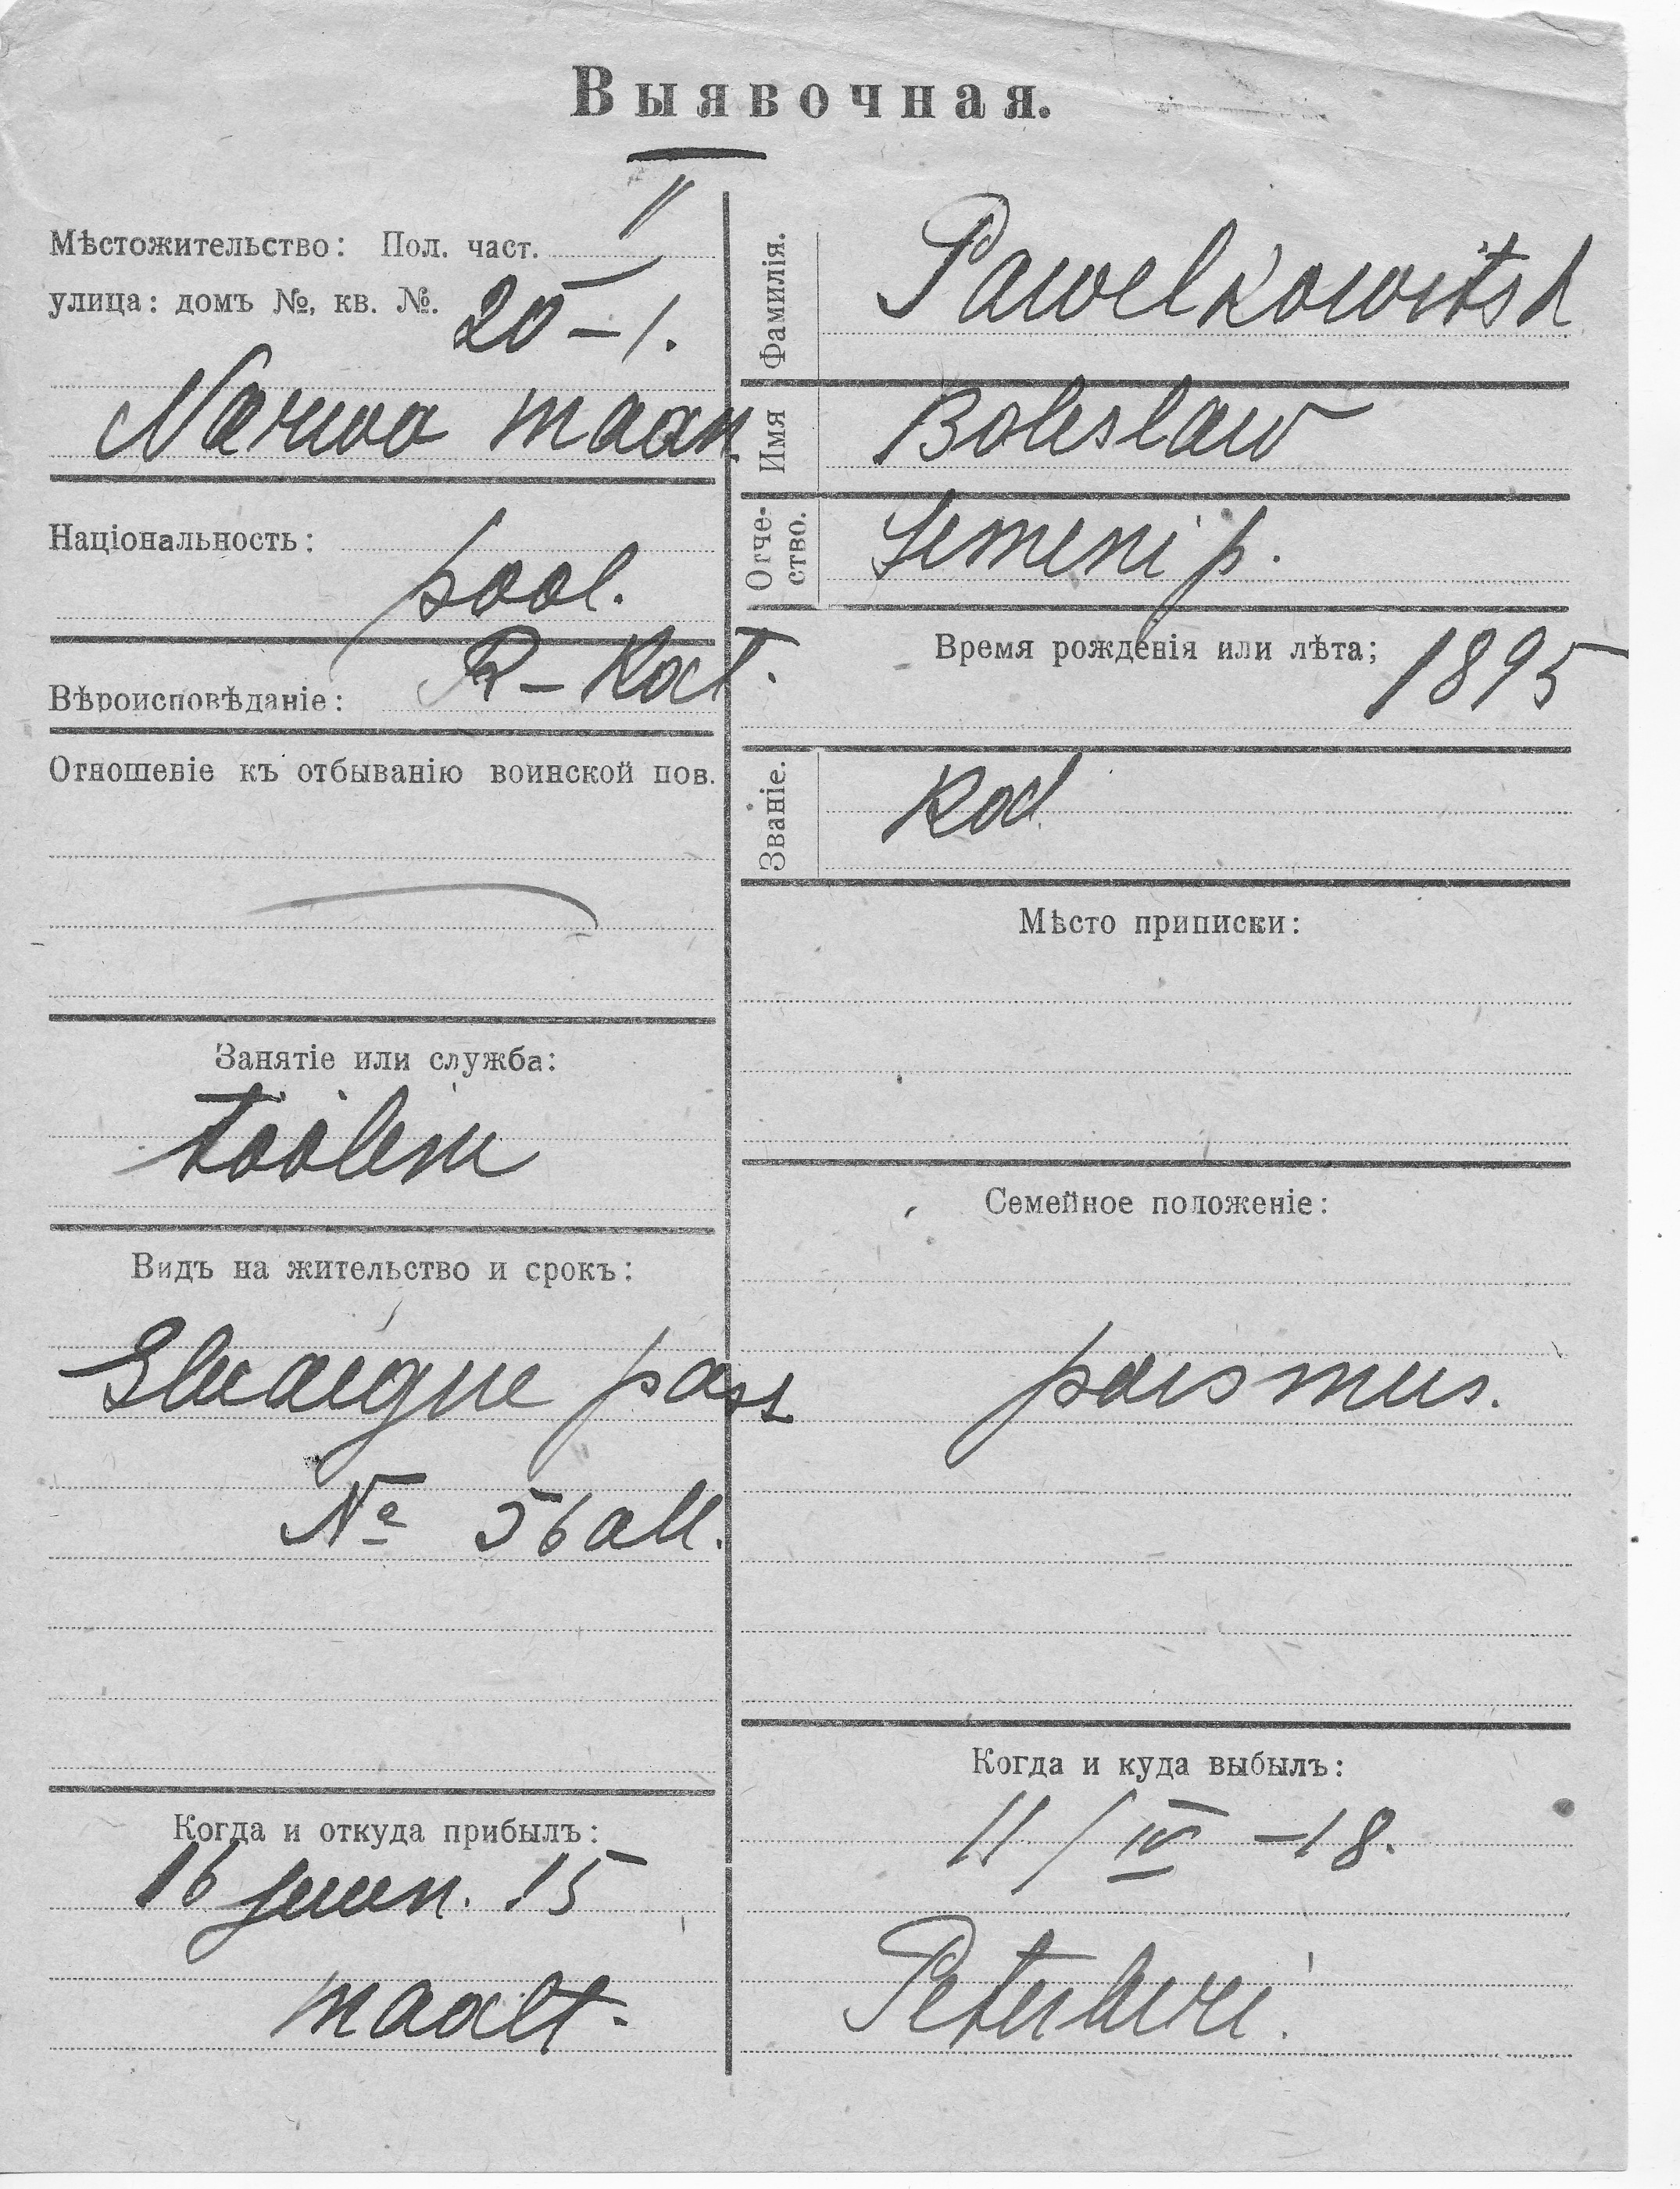 Выявочная.
Мѣстожительство: Пол. част. II
улица: домъ №, кв. №. 20 – 1.
Narwa maan.
Національность:
pool.
Вѣроисповѣданіе: R – Kat.
Отношеніе къ отбыванію воинской пов.
Занятіе или служба:
tööline
Видъ на жительство и срокъ:
Eluaigne pass
№ 56 all.
Когда и откуда прибылъ:
16 Juun. 15
maalt.
Фамилія. Pawelkowitsh
Имя Boleslaw
Отчество. Semeni p.
Время рожденія или лѣта; 1895
Званіе. Kod.
Мѣсто приписки:
Семейное положеніе:
poismees.
Когда и куда выбылъ:
11 / IV – 18.
Peterburi.